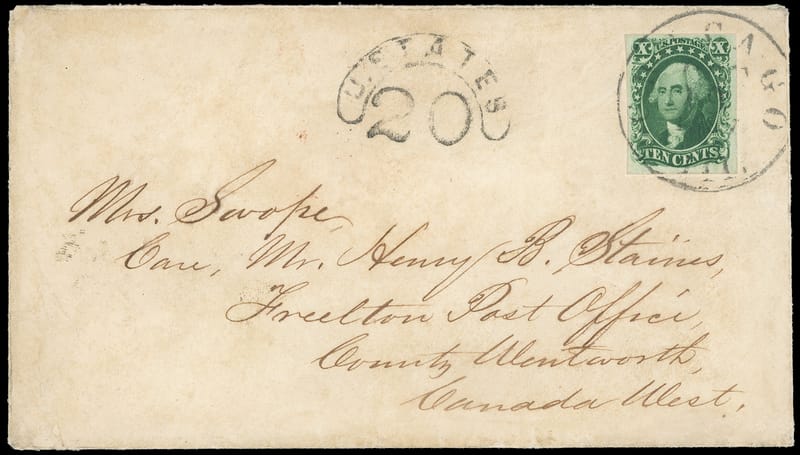 U. STATES
20
X U.S. POSTAGE X
TEN CENTS
Mrs. Swope,
Care, Mr. Henry B. Staines,
Freelton Post Office,
County Wentworth,
Canada West.